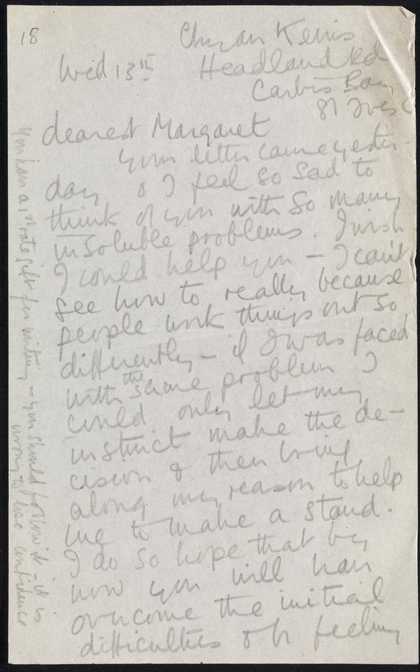 18
Chy an Kerris
Wed 13th Headland Rd
Carbis Bay
St Ives
dearest Margaret
your letter came yester-
day & I feel so sad to
think of you with so many
insoluble problems. I wish
I could help you – I can't
see how to really because
people work things out so
differently – if I was faced
with the same problem I
could only let my
instinct make the de-
cision & then bring
along my reason to help
me to make a stand.
I do so hope that by
now you will have
overcome the initial
difficulties & feeling
You have a 1st rate gift for writing – you should
wrong to lose confidence